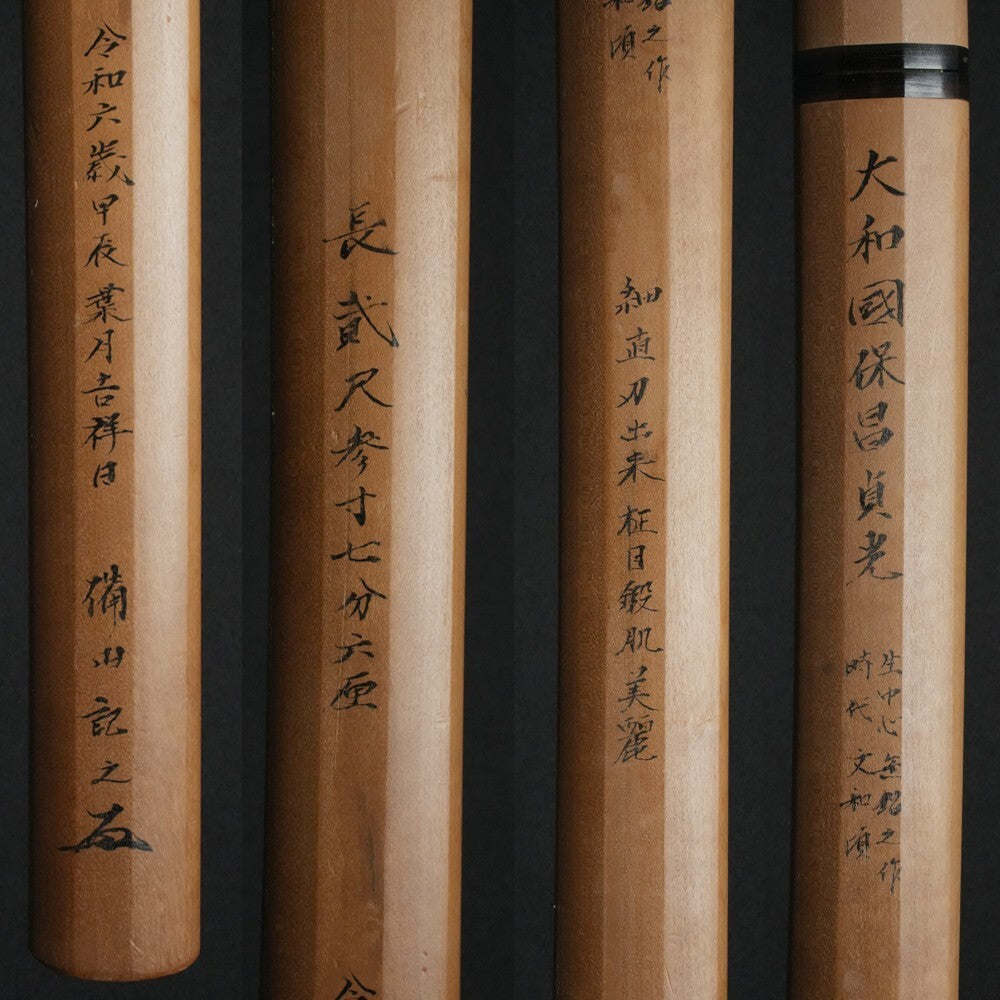 大和國保昌貞光
生中心無銘之作
時代文和頃
銘之作
和頃
細直刃出来 柾目鍛肌美麗
長貳尺参寸七分六厘
令
令和六歳甲辰葉月吉祥日 備 記之